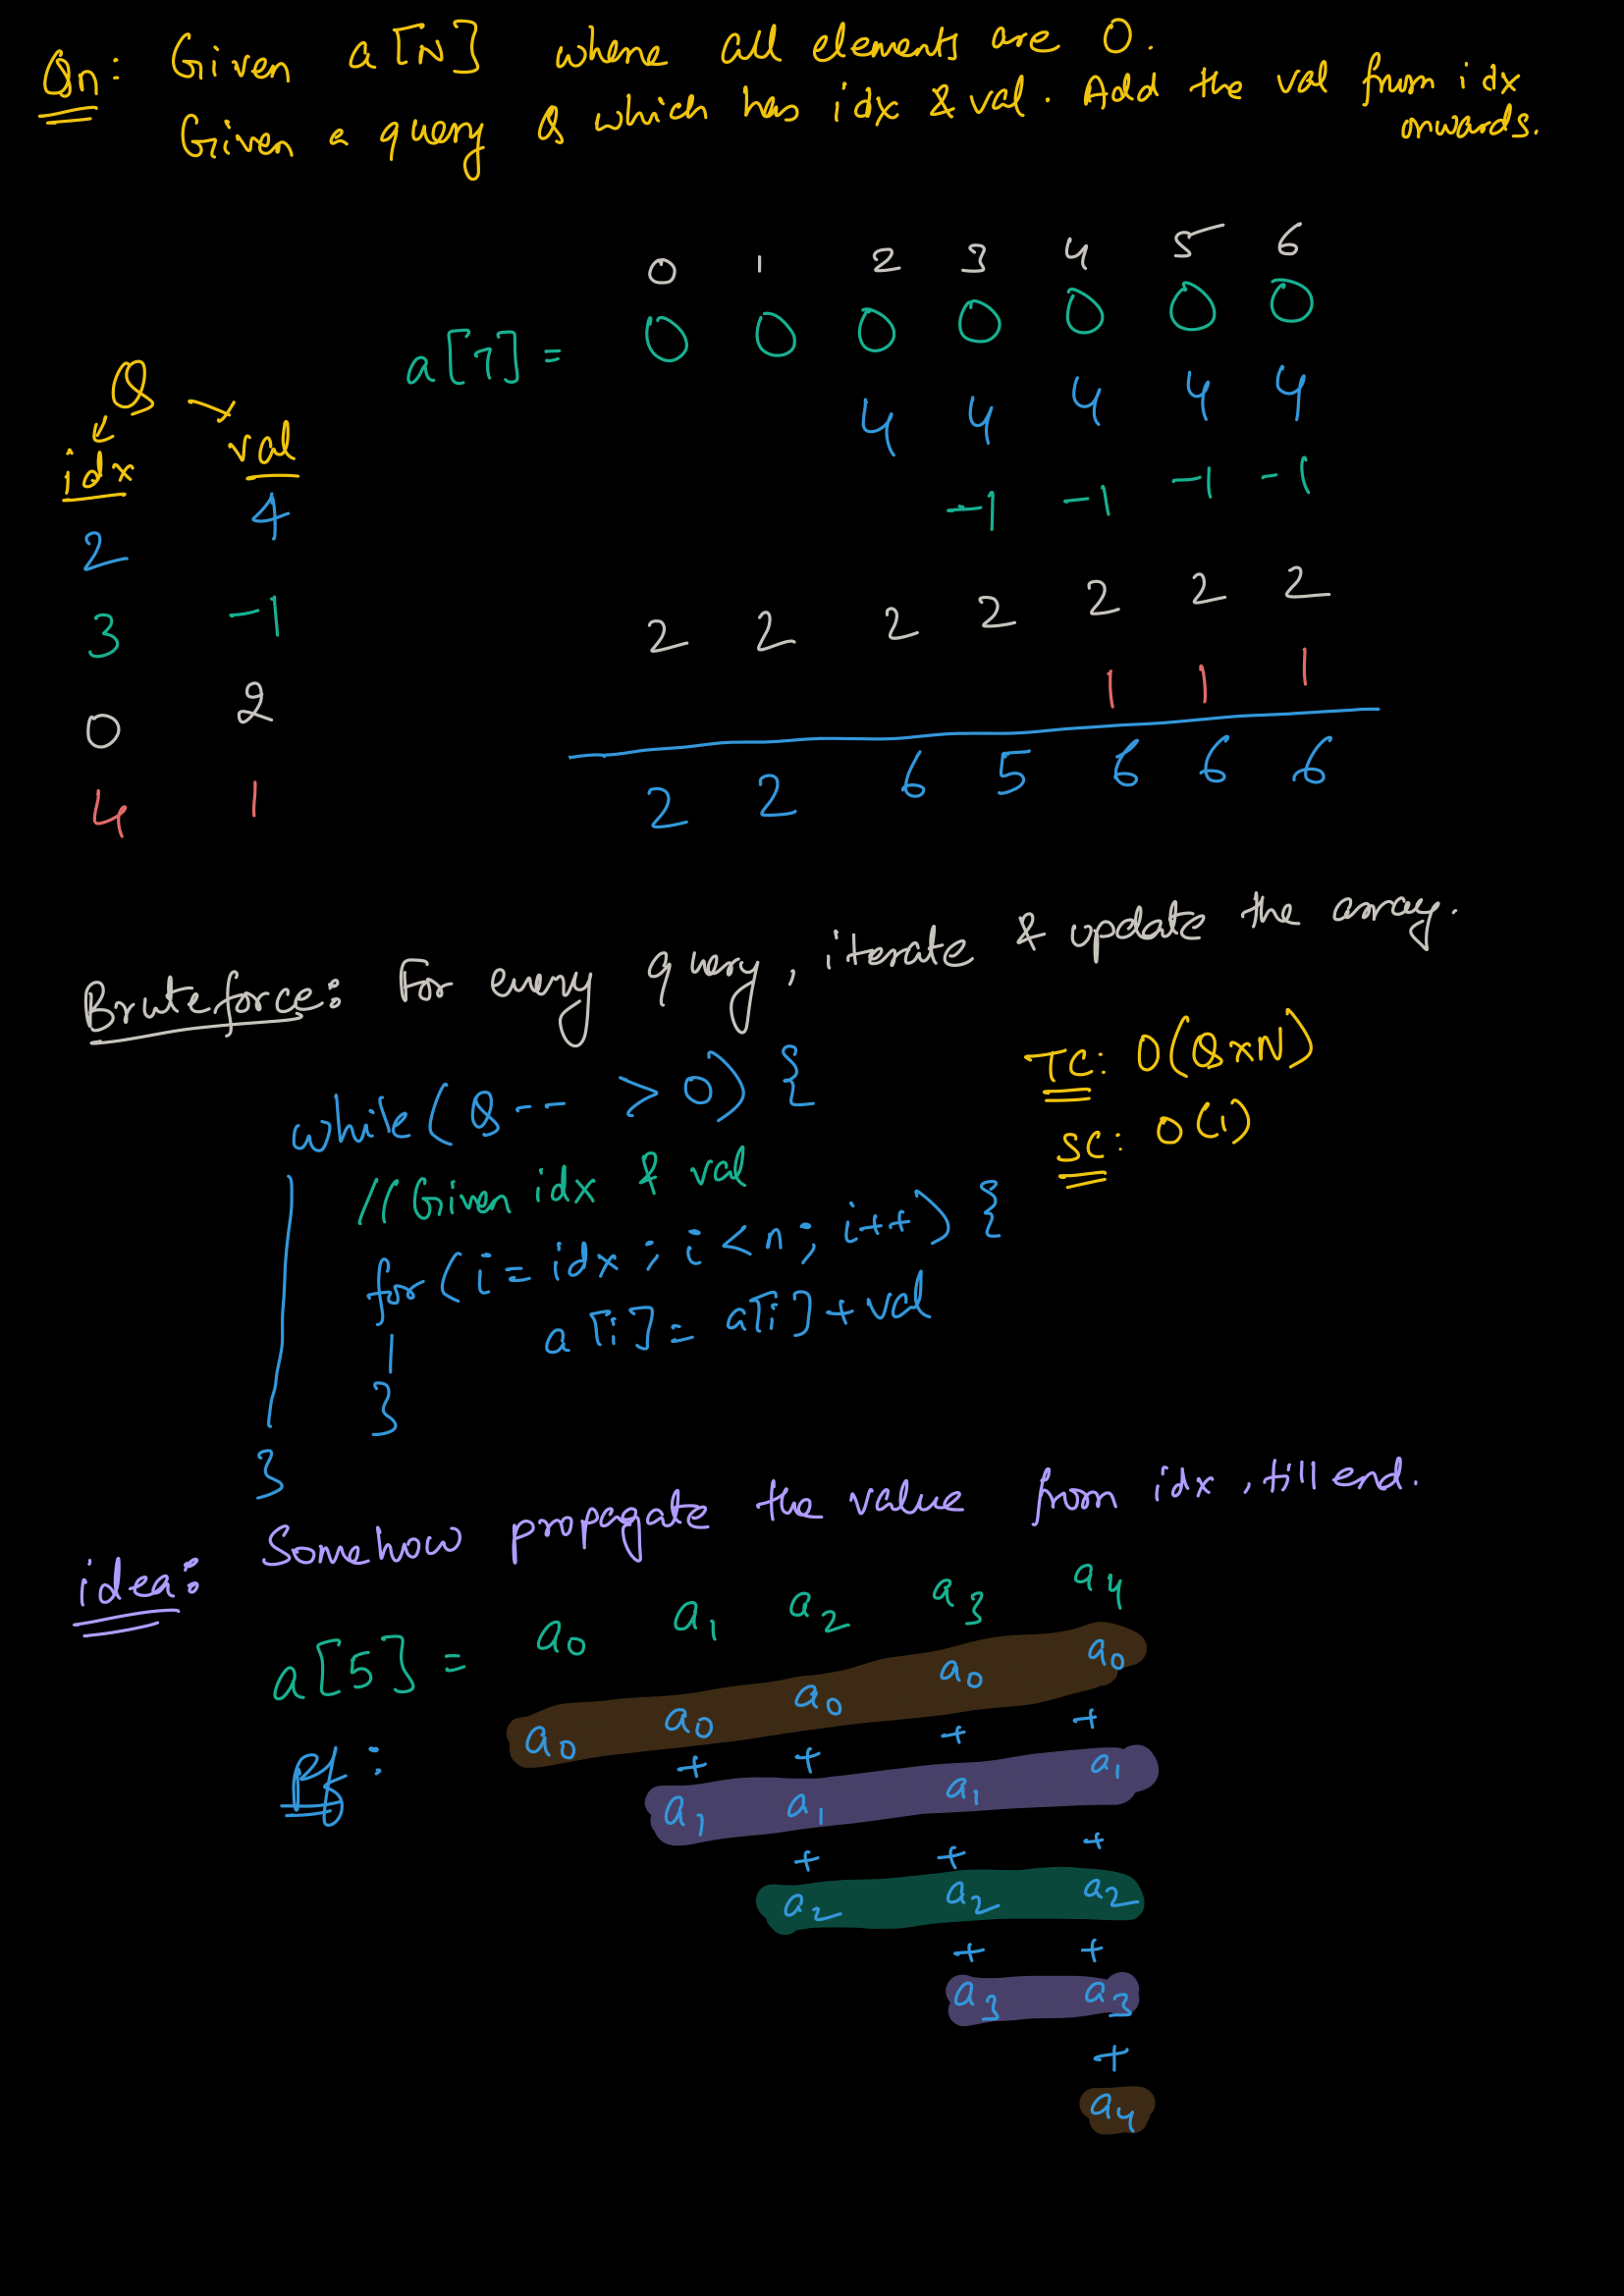 Qn: Given a[N] where all elements are 0.
Given a query Q which has idx & val. Add the val from idx
onwards.
0 1 2 3 4 5 6
a[7] = 0 0 0 0 0 0 0
4 4 4 4 4
-1 -1 -1 -1
2 2 2 2 2 2 2
1 1 1
2 2 6 5 6 6 6
Q
idx val
2 4
3 -1
0 2
4 1
Bruteforce: For every query, iterate & update the array.
while(Q-- > 0) {
//Given idx & val
for(i = idx; i < n; i++) {
a[i] = a[i] + val
}
}
TC: O(Q×N)
SC: O(1)
idea: Somehow propagate the value from idx, till end.
a[5] = a0 a1 a2 a3 a4
Pf: a0 a0 a0 a0 a0
+ + + +
a1 a1 a1 a1
+ + +
a2 a2 a2
+ +
a3 a3
+
a4